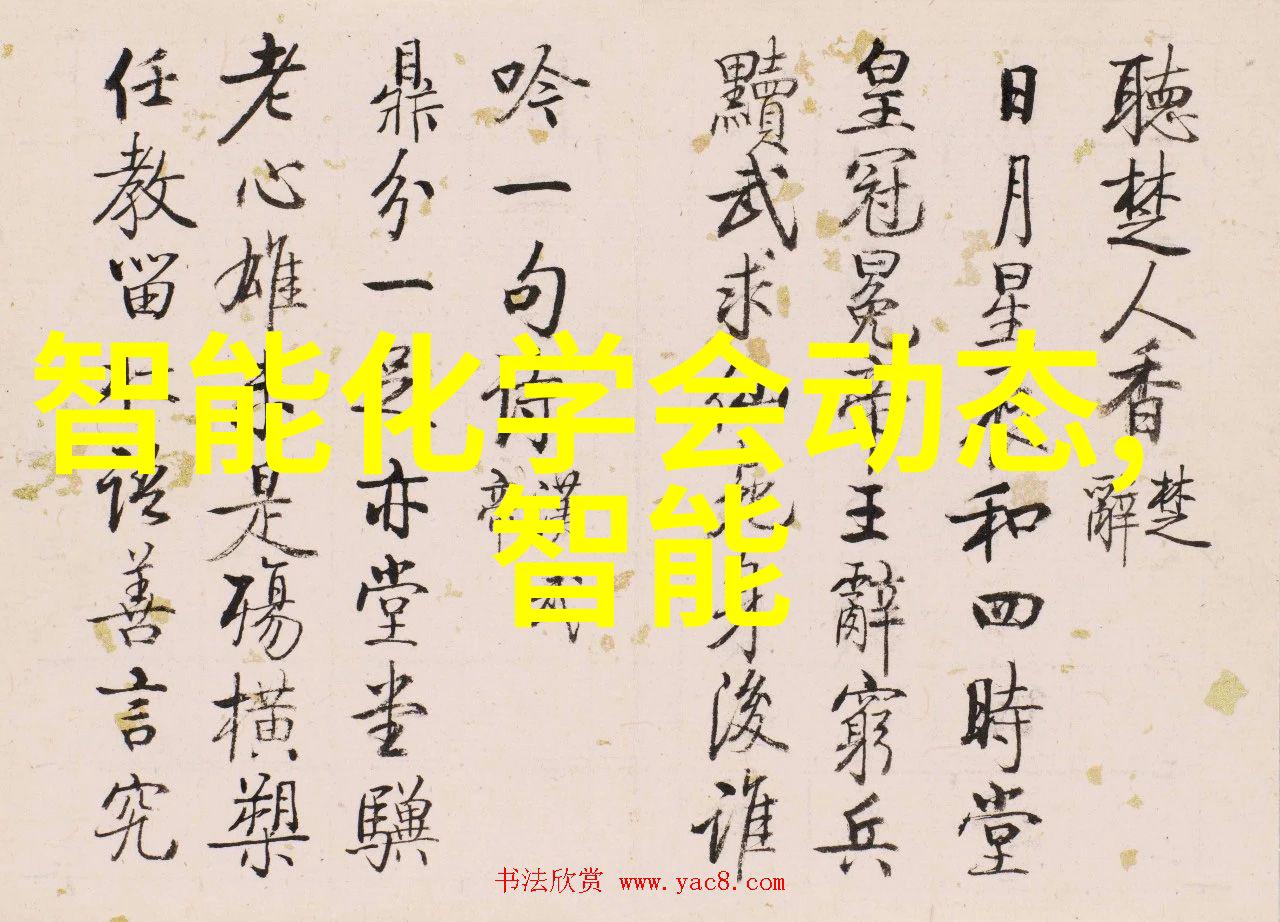 聽楚人香 楚辭
日月星辰和四時堂
皇冠冕帝王辭窮兵
黷武求仙地身後誰
吟一句詩 漢武
鼎分一亦堂堂驥
老心雄未是殤橫槊
任教留語善言究
智能化学会动态,
智能
书法欣赏 www.yac8.com